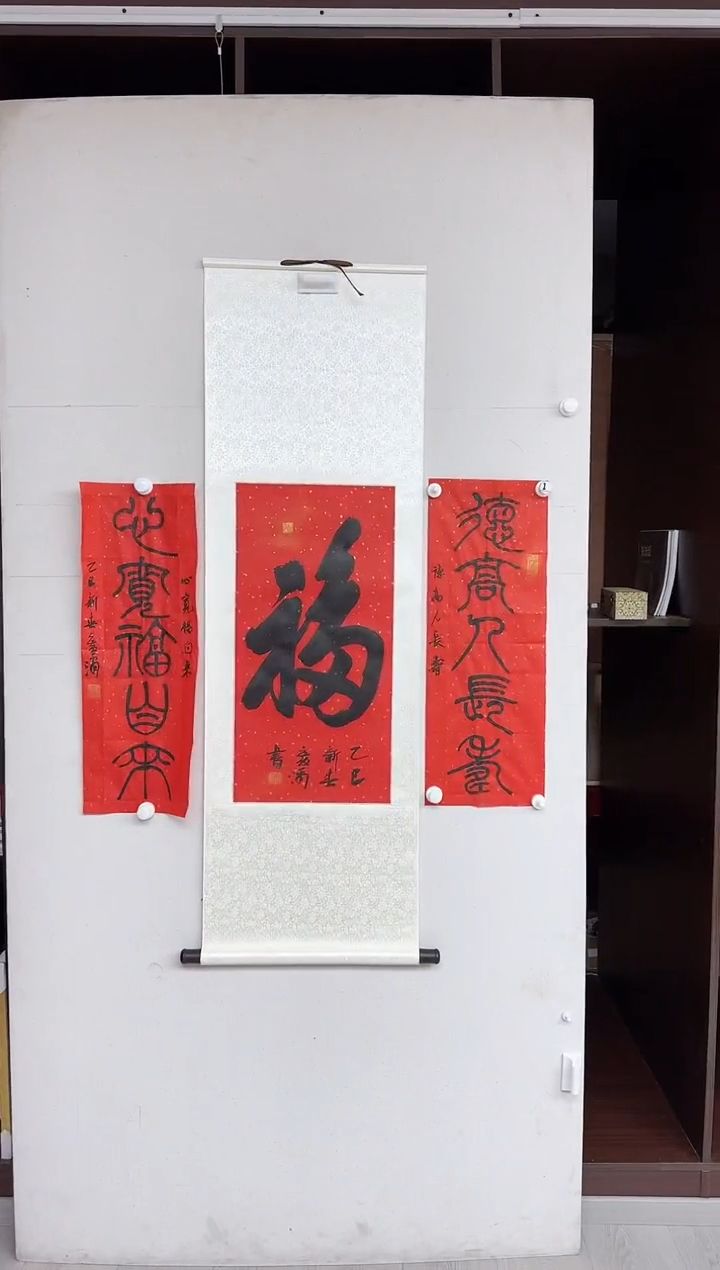 德高人長壽
德高人長壽
福
乙巳
新春
書
心寬福自來
心寬福自來
乙巳新春